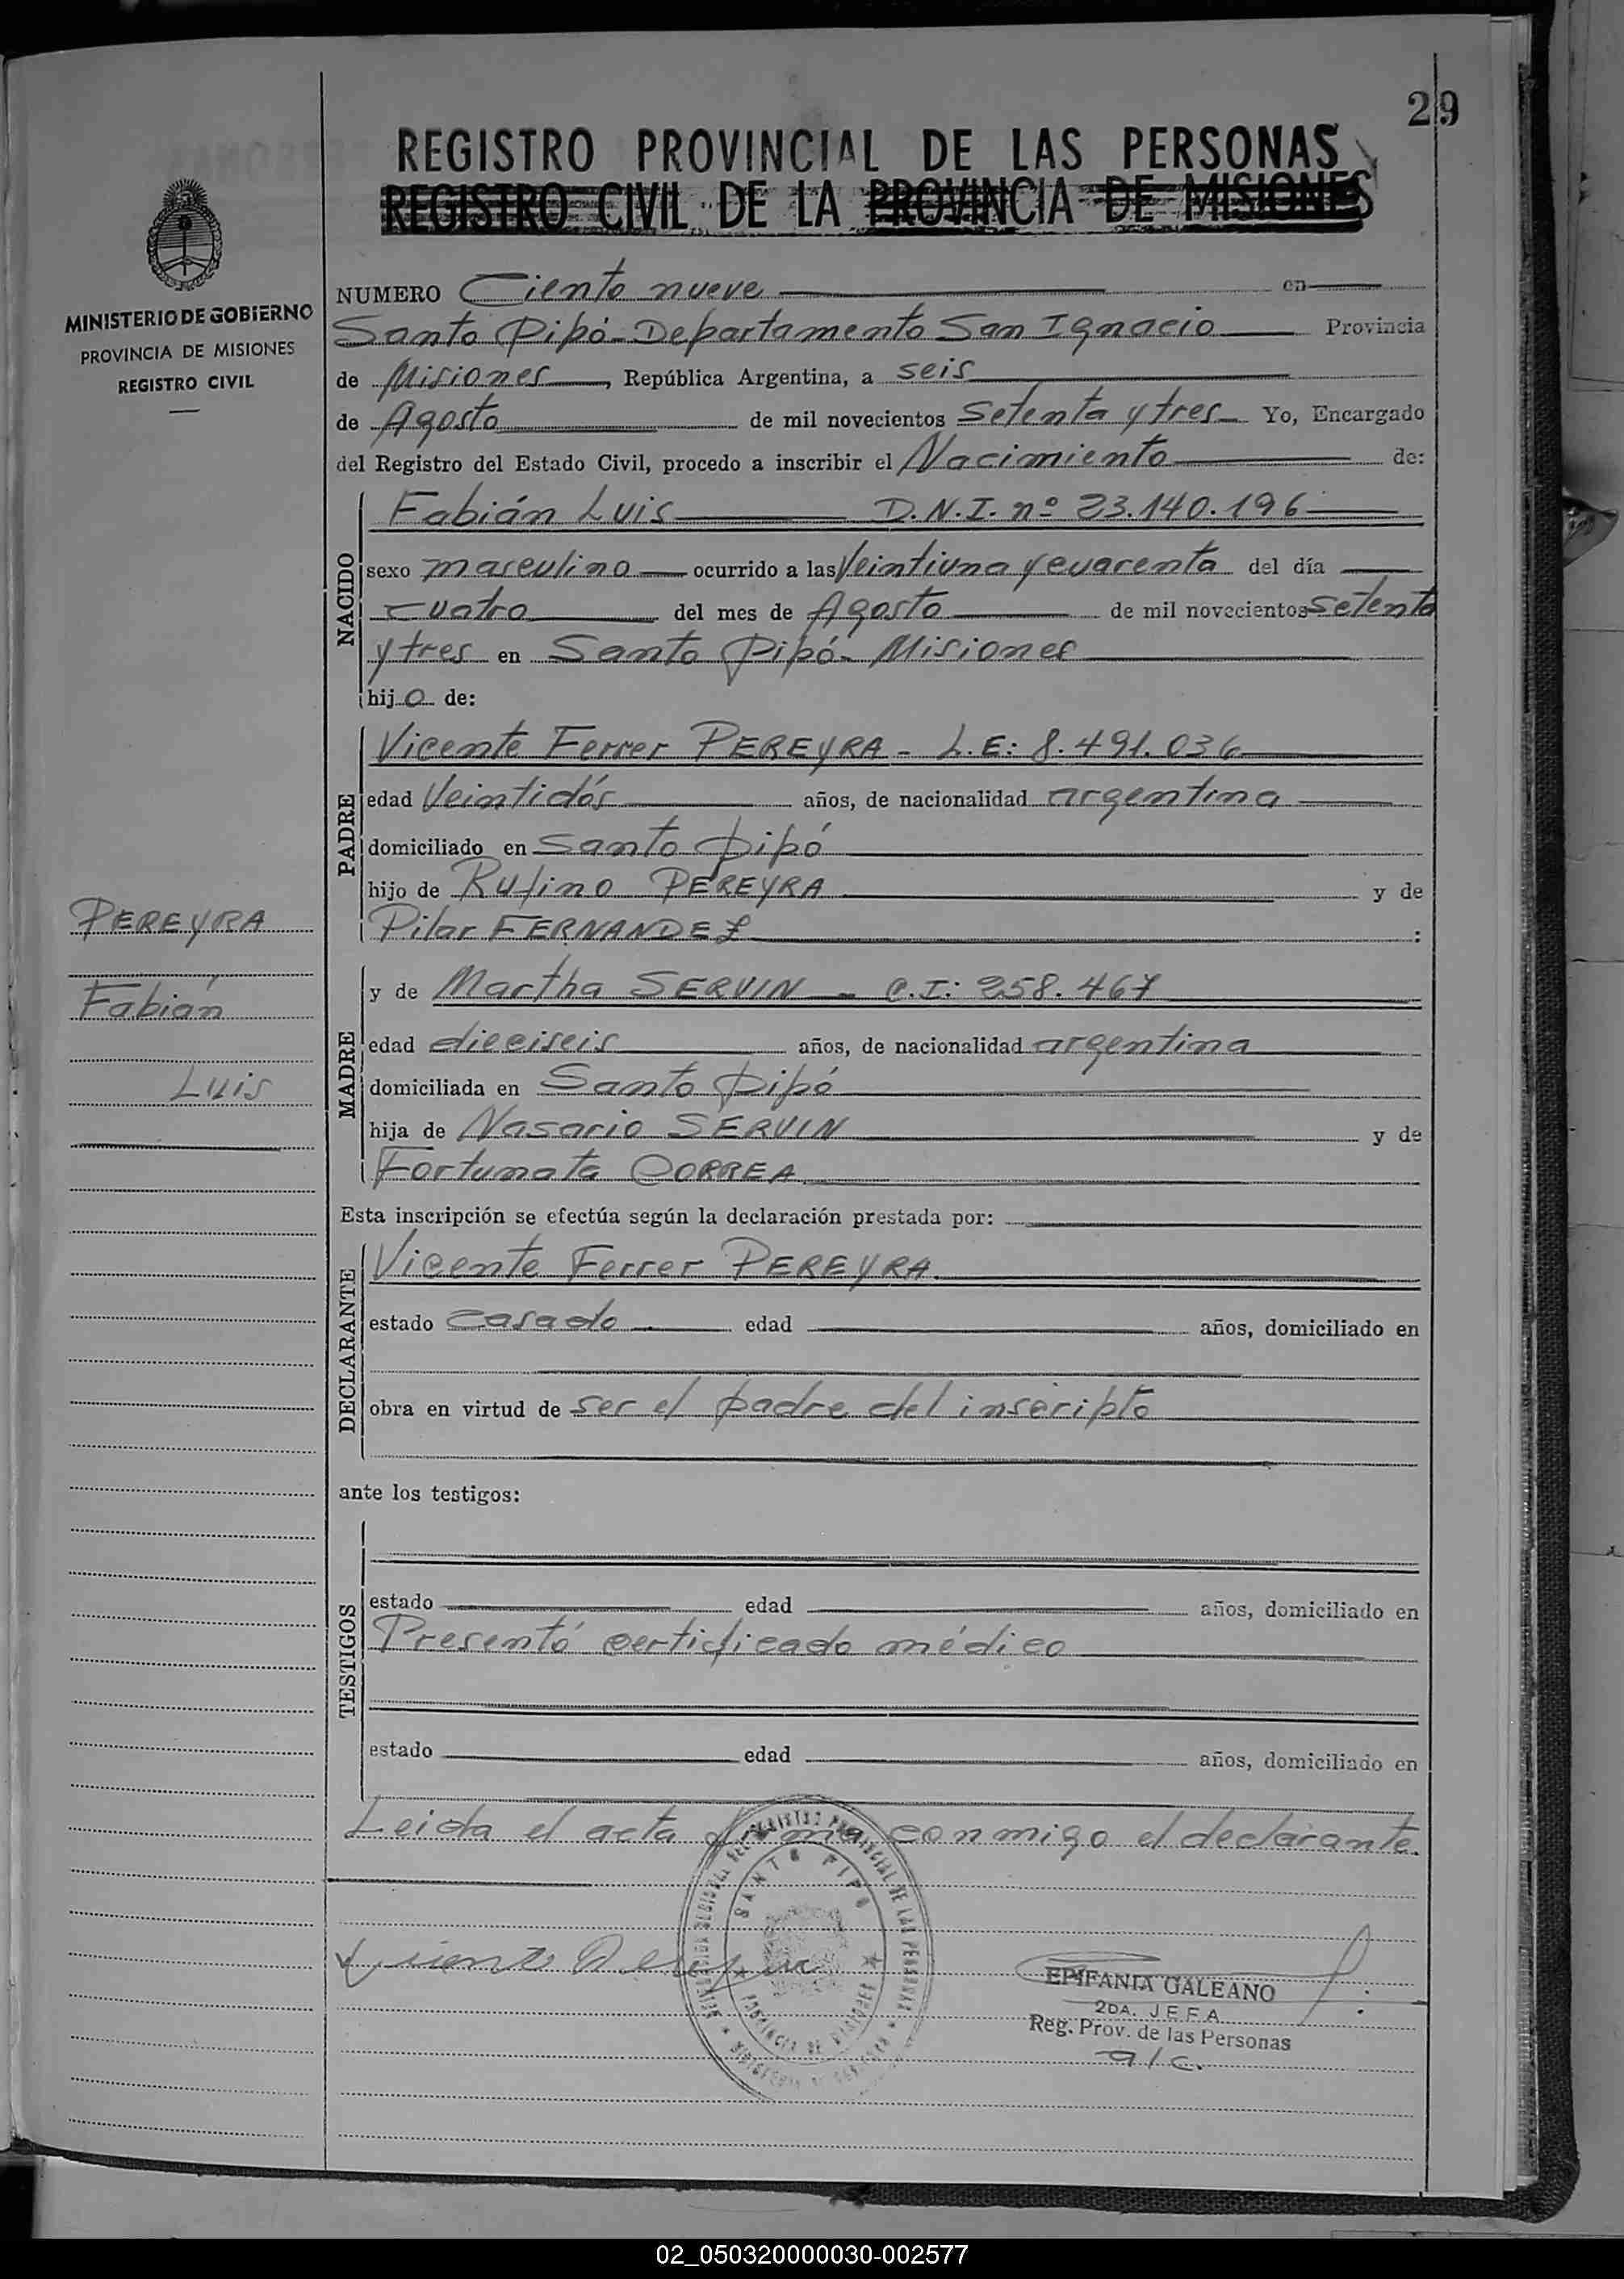 29
REGISTRO PROVINCIAL DE LAS PERSONAS
REGISTRO CIVIL DE LA PROVINCIA DE MISIONES
MINISTERIO DE GOBIERNO
PROVINCIA DE MISIONES
REGISTRO CIVIL
NUMERO Ciento nueve en
Santo Pipó - Departamento San Ignacio Provincia
de Misiones, República Argentina, a seis
de Agosto de mil novecientos setenta y tres Yo, Encargado
del Registro del Estado Civil, procedo a inscribir el Nacimiento de:
NACIDO
Fabián Luis D.N.I. nº 23.140.196
sexo masculino ocurrido a las Veintiuna y cuarenta del día
cuatro del mes de Agosto de mil novecientos setenta
y tres en Santo Pipó - Misiones
hijo de:
PADRE
Vicente Ferrer PEREYRA - L.E: 8.491.036
edad Veintidós años, de nacionalidad argentina
domiciliado en Santo Pipó
hijo de Rufino PEREYRA y de
Pilar FERNANDEZ :
MADRE
y de Martha SERVIN - C.I: 258.467
edad dieciseis años, de nacionalidad argentina
domiciliada en Santo Pipó
hija de Nasario SERVIN y de
Fortunata CORREA
PEREYRA
Fabián
Luis
Esta inscripción se efectúa según la declaración prestada por:
DECLARANTE
Vicente Ferrer PEREYRA.
estado casado edad años, domiciliado en
obra en virtud de ser el padre del inscripto
ante los testigos:
TESTIGOS
estado edad años, domiciliado en
Presentó certificado médico
estado edad años, domiciliado en
Leida el acta firma conmigo el declarante.
SANTO PIPO
PROVINCIA DE MISIONES
EPIFANIA GALEANO
2DA. JEFA
Reg. Prov. de las Personas
a/c.
02_050320000030-002577